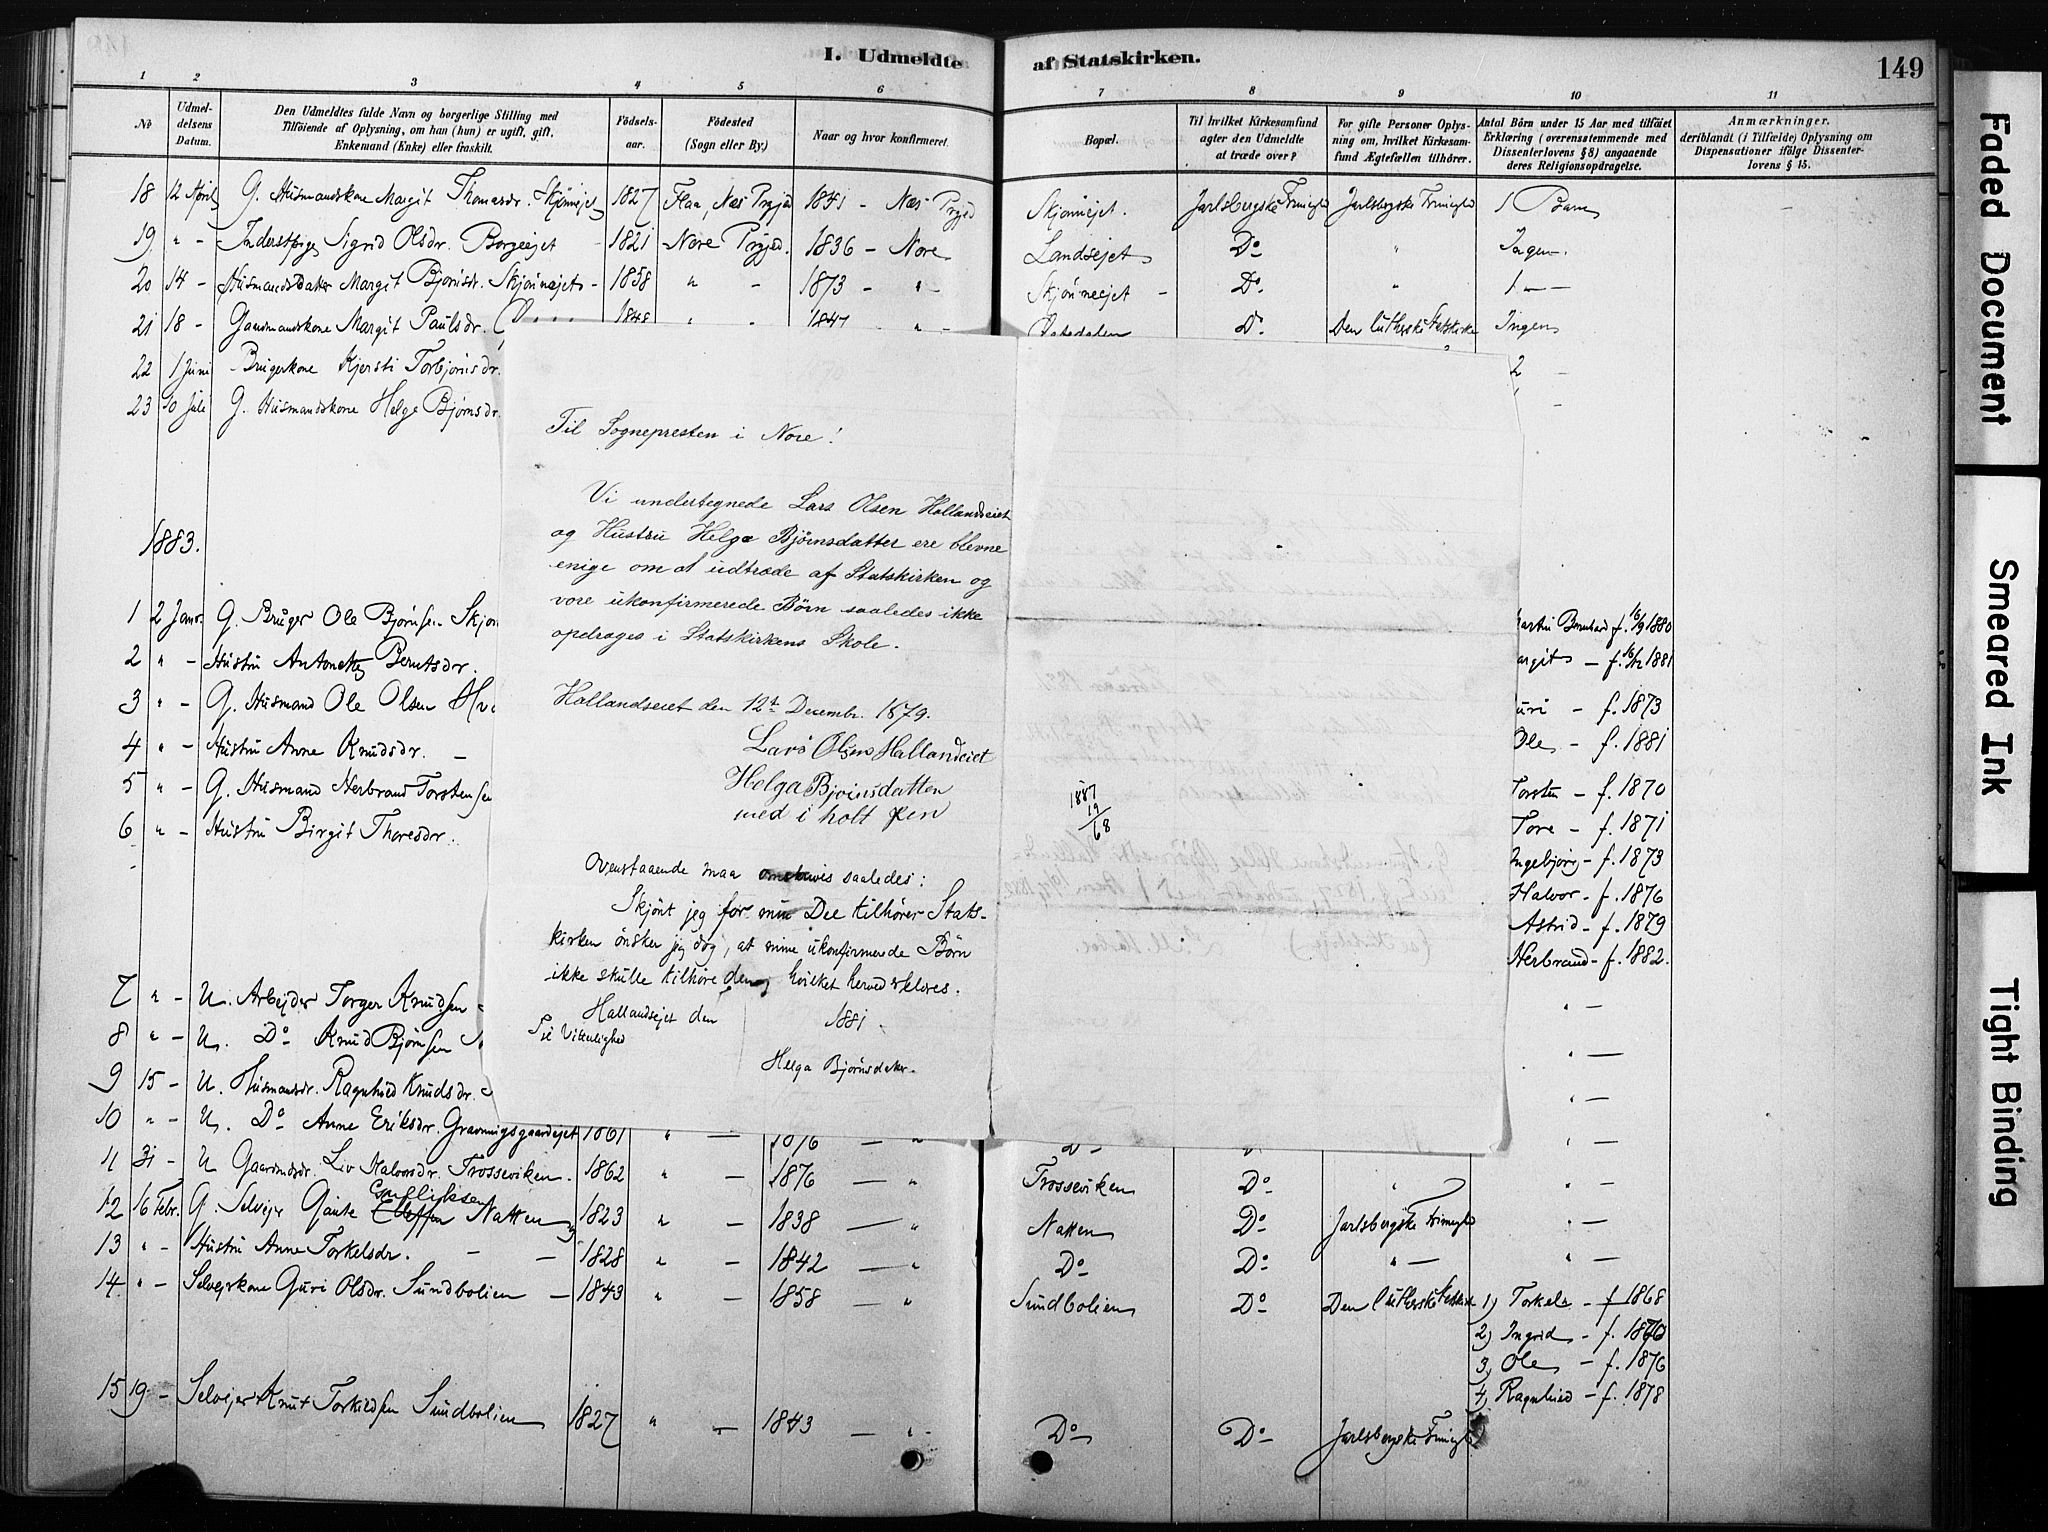 I. Udmeldte af Statskirken. 149
1 2 3 4 5 6 7 8 9 10 11
No
Udmel-
delsens
Datum.
Den Udmeldtes fulde Navn og borgerlige Stilling med
Tilföiende af Oplysning, om han (hun) er ugift, gift,
Enkemand (Enke) eller fraskilt.
Födsels-
aar.
Födested
(Sogn eller By.)
Naar og hvor konfirmeret.
Bopæl.
Til hvilket Kirkesamfund
agter den Udmeldte
at træde over?
For gifte Personer Oplys-
ning om, hvilket Kirkesam-
fund Ægtefællen tilhörer.
Antal Börn under 15 Aar med tilföiet
Erklæring (overensstemmende med
Dissenterlovens § 8) angaaende
deres Religionsopdragelse.
Anmærkninger.
deriblandt (i Tilfælde) Oplysning om
Dispensationer ifölge Dissenter-
lovens § 15.
18 12 April G. Husmandskone Margit Thomasdr. Skjönnejet 1827 Flaa, Næs Prgjd 1841 - Næs Prgjd Skjönnejet. Jarlsbergske Frimigh Jarlsbergske Frimigh 1 Barn
19 " - Inderstpige Sigrid Olsdr. Borgeejet - 1821 Nore Prgjed. 1836 - Nore Landsejet Do " Ingen.
20 14 - Husmandsdatter Margit Bjørnsdr. Skjönnejet - 1858 " - 1873 - " - Skjönneejet - Do. " 1 -
21 18 - Gaardmandskone Margit Paulsdr. 1848 " 1847 - " - Do. Den lutherske Statskirke Ingen
22 1 Juni Brugerkone Kjersti Torbjörnsdr. 2 -
23 10 Juli G. Husmandskone Helge Bjørnsdr. -
Til Sognepresten i Nore!
Vi undertegnede Lars Olsen Hallandseiet
og Hustru Helga Bjørnsdatter ere blevne
enige om at udtræde af Statskirken og
vore ukonfirmerede Børn saaledes ikke
opdrages i Statskirkens Skole.
Hallandseiet den 12te Decembr. 1879.
Lars Olsen Hallandeiet
Helga Bjoinsdatten
med i holt pen
Ovenstaaende maa omskrives saaledes:
Skjönt jeg for min Del tilhører Stats-
kirken önsker jeg dog, at mine ukonfirmerede Börn
ikke skulle tilhöre den, hvilket herved erklæres.
Hallandsejet den 1881.
Til Vitterlighed
Helga Bjørnsdatter.
1887
19
68
1883.
1 2 Janr. G. Bruger Ole Bjørnsen Skjön Martin Bernhard f. 16/9 1880
2 " - Hustru Antonette Berntsdr. argit - f. 16/12 1881
3 " - G. Husmand Ole Olsen uri - f. 1873
4 " - Hustru Anne Knudsdr. - Ole - f. 1881
5 " - G. Husmand Herbrand Torstensen Torsten - f. 1870
6 " - Hustru Birgit Thoresdr. Tore - f. 1871
Ingebjörg - f. 1873
Halvor - f. 1876
Astrid - f. 1879
Herbrand - f. 1882.
7 " - U. Arbejder Torger Knudsen " -
8 " - U. Do Knud Bjørnsen " -
9 15 - U. Husmansdr. Ragnhild Knudsdr. " -
10 " - U. Do Anne Eriksdr. Gravningsgaardejet 1861 " - 1876 - " Do " -
11 31 - U Gaardmdsdr. Liv Halvorsdr. Trosseviken. 1862 " - 1876 - " Trosseviken Do " " -
12 16 Febr. G. Selvejer Gunte Ellefsen Natten 1823 " - 1838 - " Natten Do Jarlsbergske Frimeghd " -
13 " - Hustru Anne Torkelsdr. - - 1828 " - 1842 - " Do Do " - " -
14. " - Selvejerkone Guri Olsdr. Sundbolien - 1843 " - 1858 - " Sundbolien Do Den lutherske Statskirke 1) Torkel - f. 1868
2) Ingrid - f. 1870
3) Ole - f. 1876
4) Ragnhild - f. 1878
15 19 - Selvejer Knut Torkildsen Sundbolien 1827 " - 1843 - " - Do Do Jarlsbergske Frimeghd
Faded Document
Smeared Ink
Tight Binding